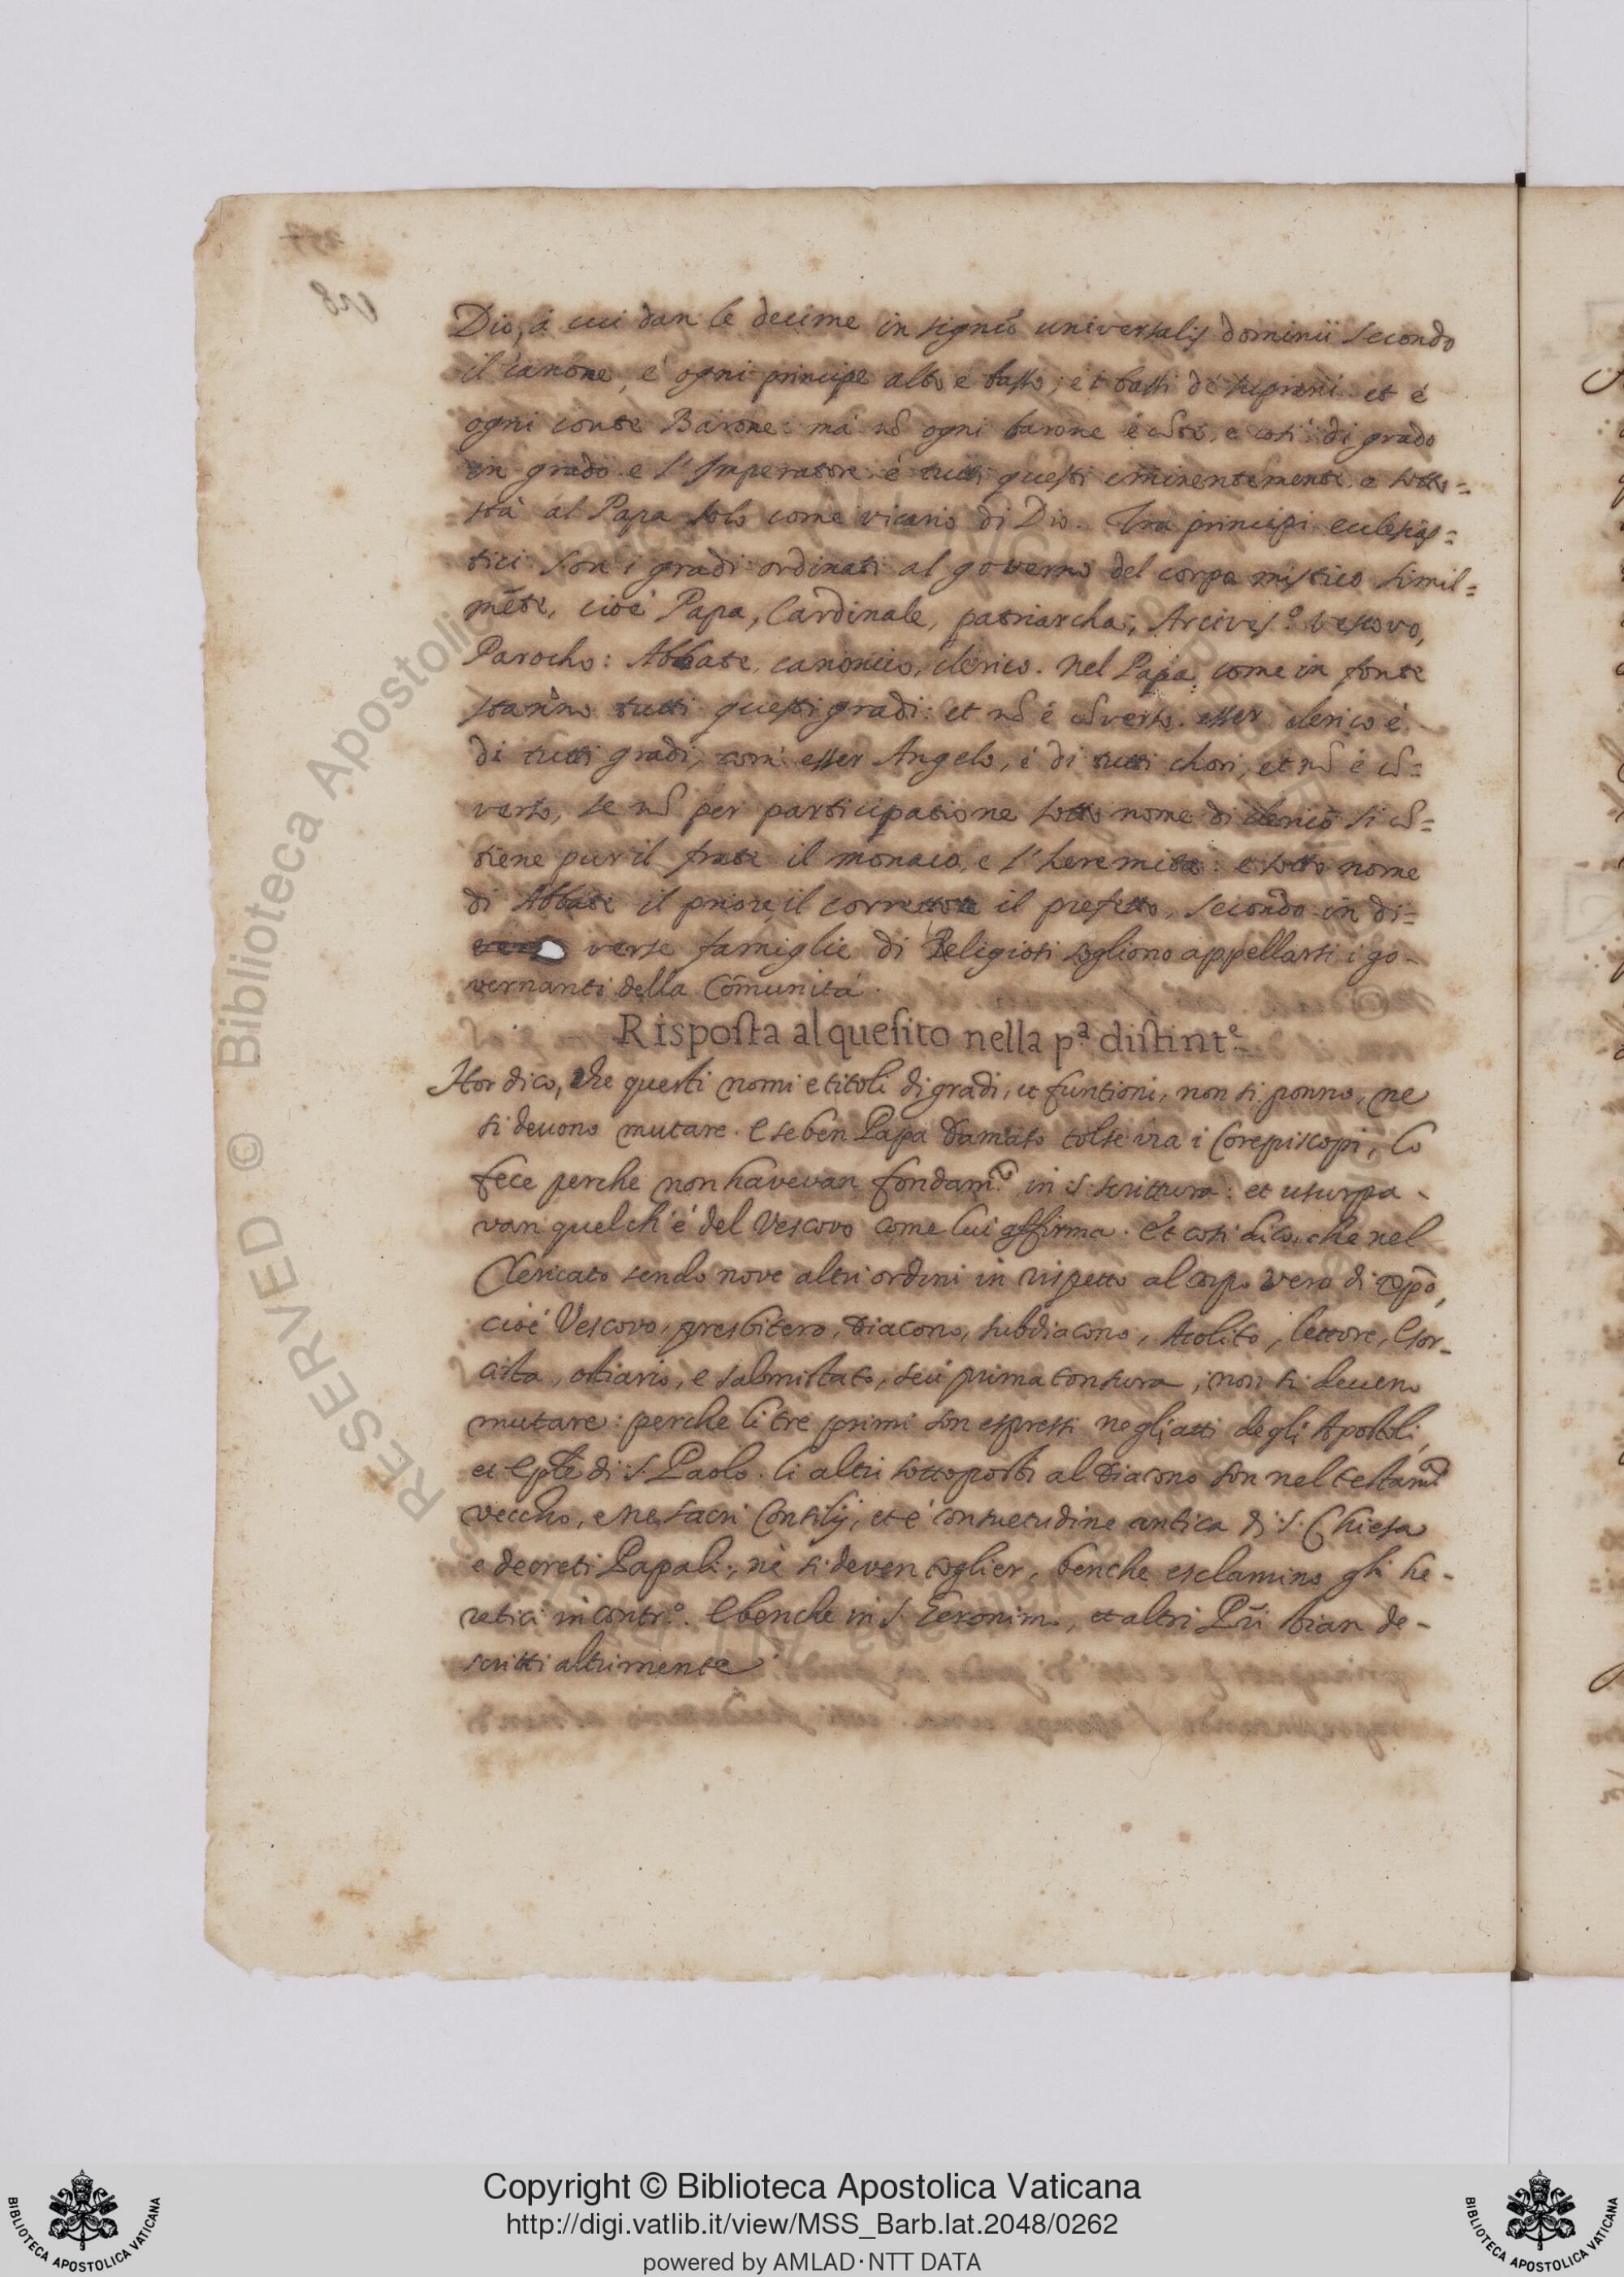 Dio, à cui dan le decime in signũ universalis dominii secondo
il canone, è ogni principe alto e basso, e i bassi de supremi. et è
ogni conte Barone: ma nõ ogni barone è cõte, e così di grado
in grado. e l'Imperatore è tutti questi eminentemente. e sotto=
stà al Papa solo come vicario di Dio. Tra principi eclesias=
tici son i gradi ordinati al governo del corpo mistico simil=
mẽte, cioè Papa, Cardinale, patriarcha, Arcives.º Vescovo,
Parocho: Abbate, canonico, clerico. Nel Papa come in fonte
stanno tutti questi gradi: et nõ è cõverso. esser clerico è
di tutti gradi, com' esser Angelo, è di tutti chori, et nõ è cõ=
verso, se nõ per participatione sotto nome di clerico si cõ=
tiene pur il frate il monaco, e l'heremita: e sotto nome
di Abbate il priore, il correttore il prefetto, secondo in di=
verse famiglie di Religiosi sogliono appellarsi i go-
vernanti della Cõmunità.
Risposta al quesito nella pª distint.e
Hor dico, che questi nomi e titoli di gradi, et funtioni, non si ponno, ne
si devono mutare. E se ben Papa Damaso tolse via i Corepiscopi, lo
fece perche non havevan fondam.to in S. scrittura: et usurpa-
van quelch'è del Vescovo come lui affirma. Et così dico, che nel
Clericato sendo nove altri ordini in rispetto al corpo vero di
cioè Vescovo, presbitero, Diacono, subdiacono, Acolito, lettore, Esor-
cista, ostiario, e salmistato, seu prima tonsura, non si deveno
mutare: perche li tre primi son espressi negli atti degli Apostoli,
et Eplẽ di S. Paolo. li altri sottoposti al Diacono son nel testam.to
vecchio, e ne sacri Consilij, et è consuetudine antica di S. Chiesa
e decreti Papali; nè si deven toglier, benche esclamino gli he-
retici in contr.º. E benche in S. Geronimo, et altri Pri sian de-
scritti altrimente
RESERVED © Biblioteca Apostolica Vaticana
Copyright © Biblioteca Apostolica Vaticana
http://digi.vatlib.it/view/MSS_Barb.lat.2048/0262
powered by AMLAD·NTT DATA
BIBLIOTECA APOSTOLICA VATICANA
BIBLIOTECA APOSTOLICA VATICANA